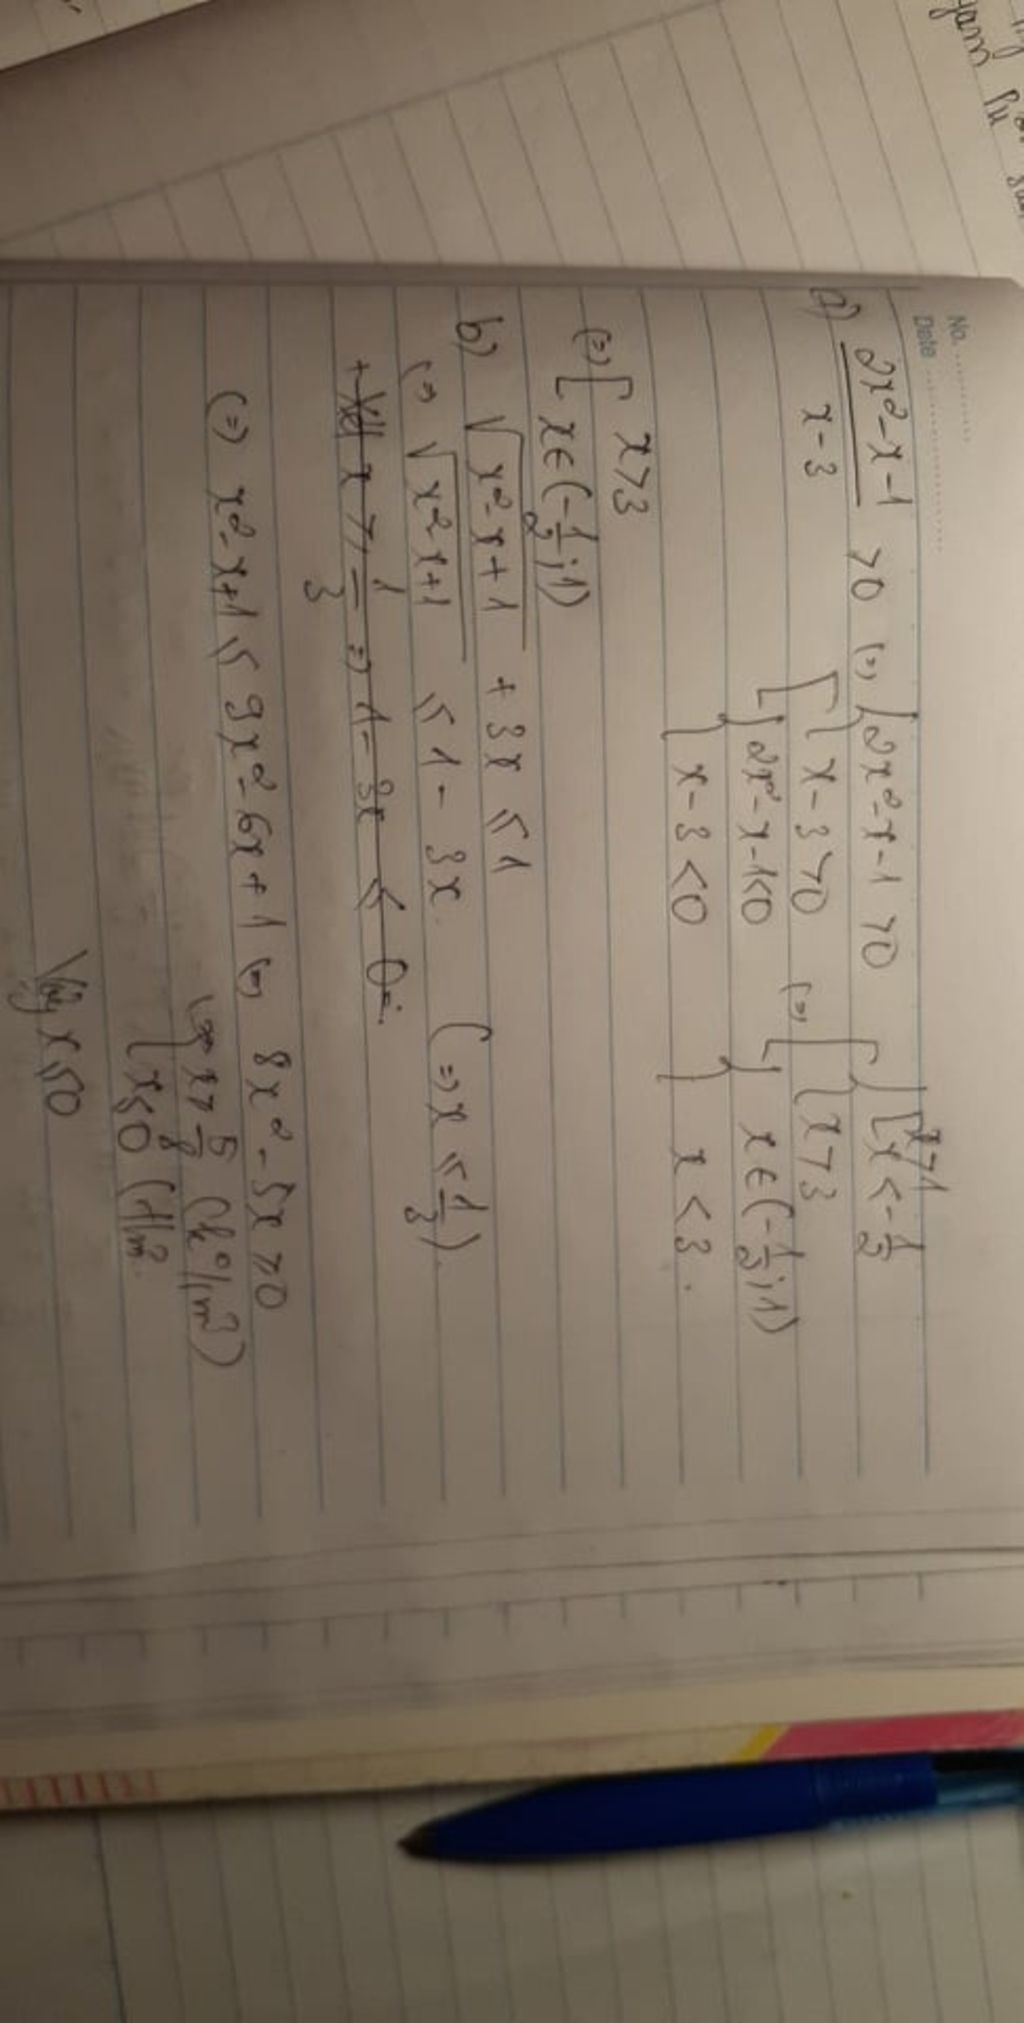 No.
Date
a) 2x²-x-1 / x-3 >0 (=) [ { 2x²-x-1 >0 ; x-3 >0 ; { 2x²-x-1<0 ; x-3 <0 (=) [ { [ x>1 ; x<-1/2 ; x>3 ; { x∈(-1/2;1) ; x<3.
(=) [ x>3
x∈(-1/2;1)
b) √x²-x+1 + 3x ≤ 1
(=) √x²-x+1 ≤ 1 - 3x. (=> x ≤ 1/3).
x > 1/3 => 1-3x < 0
(=) x²-x+1 ≤ 9x²-6x+1 (=) 8x²-5x≥0
x≥ 5/8 (k°/m)
x≤0 (t/m).
Vậy x≤0